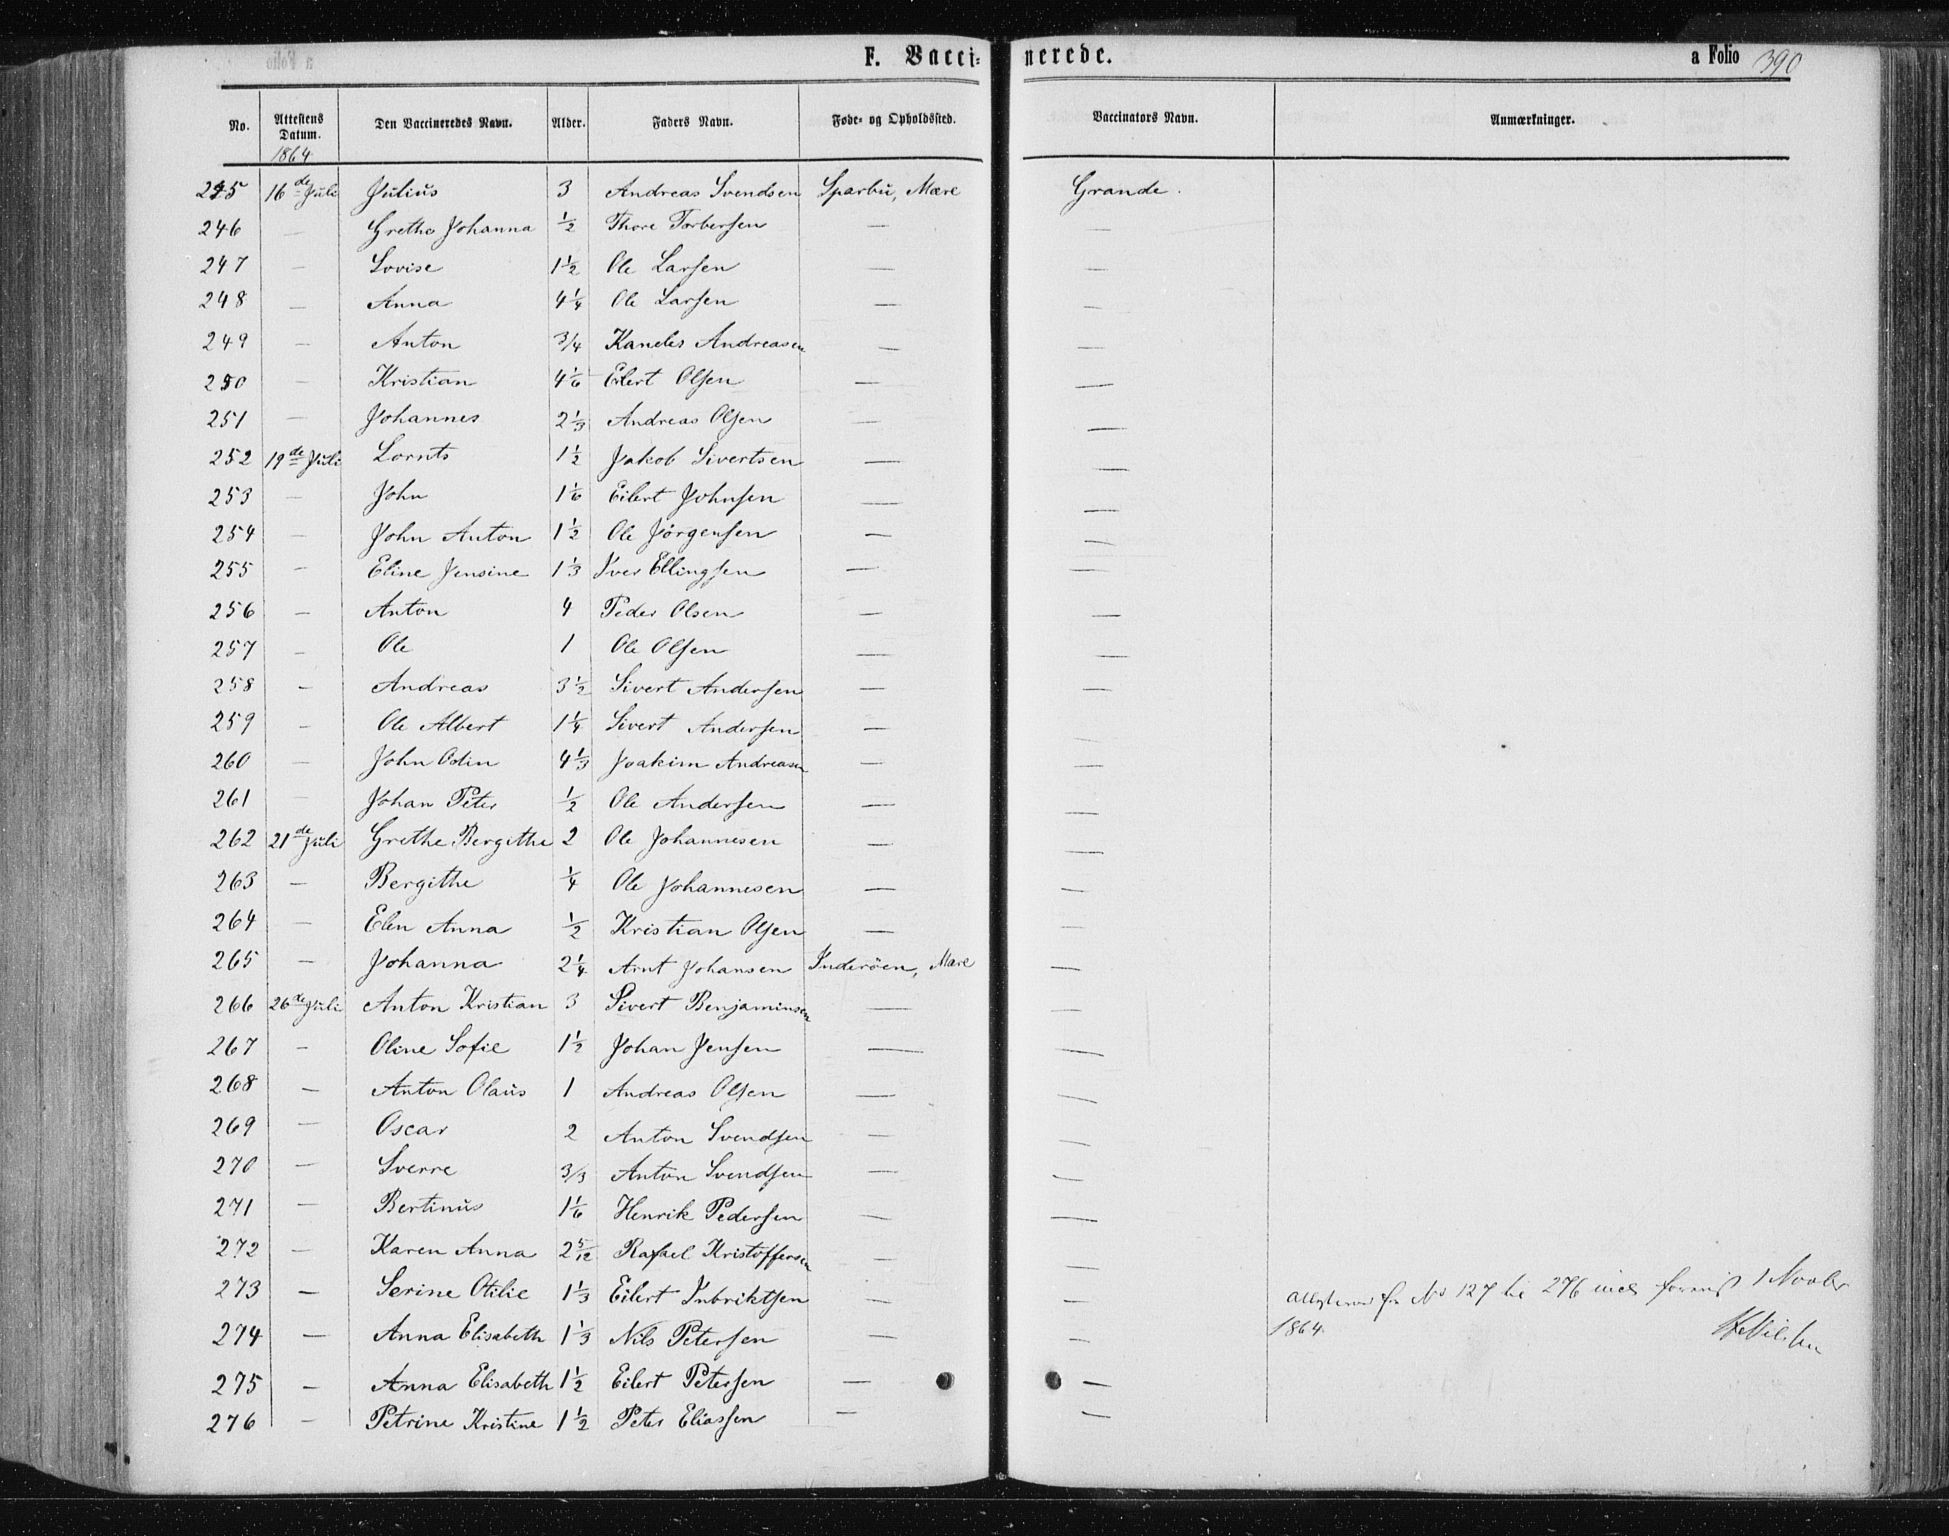 F. Vaccinerede. a Folio 390
No. Attestens Datum. Den Vaccineredes Navn. Alder. Faders Navn. Føde- og Opholdssted. Vaccinators Navn. Anmærkninger.
1864
245 16de Juli Julius 3 Andreas Svendsen Sparbu, Mære Grande.
246 — Grethe Johanna 1/2 Thore Torbersen — —
247 — Lovise 1 1/2 Ole Larsen — —
248 — Anna 4 1/4 Ole Larsen — —
249 — Anton 3/4 Kaneles Andreasen — —
250 — Kristian 4 1/6 Eilert Olsen — —
251 — Johannes 2 1/3 Andreas Olsen — —
252 19de Juli Lornts 1 1/2 Jakob Sivertsen — —
253 — John 1 1/6 Eilert Johnsen — —
254 — John Anton 1 1/2 Ole Jørgensen — —
255 — Eline Jensine 1 1/3 Iver Ellingsen — —
256 — Anton 4 Peder Olsen — —
257 — Ole 1 Ole Olsen — —
258 — Andreas 3 1/2 Sivert Andersen — —
259 — Ole Albert 1 1/4 Sivert Andersen — —
260 — John Odin 4 1/3 Joakim Andreasen — —
261 — Johan Peter 1/2 Ole Andersen — —
262 21de Juli Grethe Bergithe 2 Ole Johannesen — —
263 — Bergithe 1/4 Ole Johannesen — —
264 — Elen Anna 1/2 Kristian Olsen — —
265 — Johanna 2 1/4 Arnt Johansen Inderöen, Mære —
266 26de Juli Anton Kristian 3 Sivert Benjaminsen — —
267 — Oline Sofie 1 1/2 Johan Jensen — —
268 — Anton Olaus 1 Andreas Olsen — —
269 — Oscar 2 Anton Svendsen — —
270 — Sverre 3/3 Anton Svendsen — —
271 — Bertinus 1 1/6 Henrik Pedersen — —
272 — Karen Anna 2 5/12 Rafael Kristoffersen — —
273 — Serine Otilie 1 1/3 Eilert Inbriktsen — —
274 — Anna Elisabeth 1 1/3 Nils Petersen — —
275 — Anna Elisabeth 1 1/2 Eilert Petersen — —
276 — Petrine Kristine 1 1/2 Peter Eliassen — —
No 127 til 276 incl 1 Novbr
1864